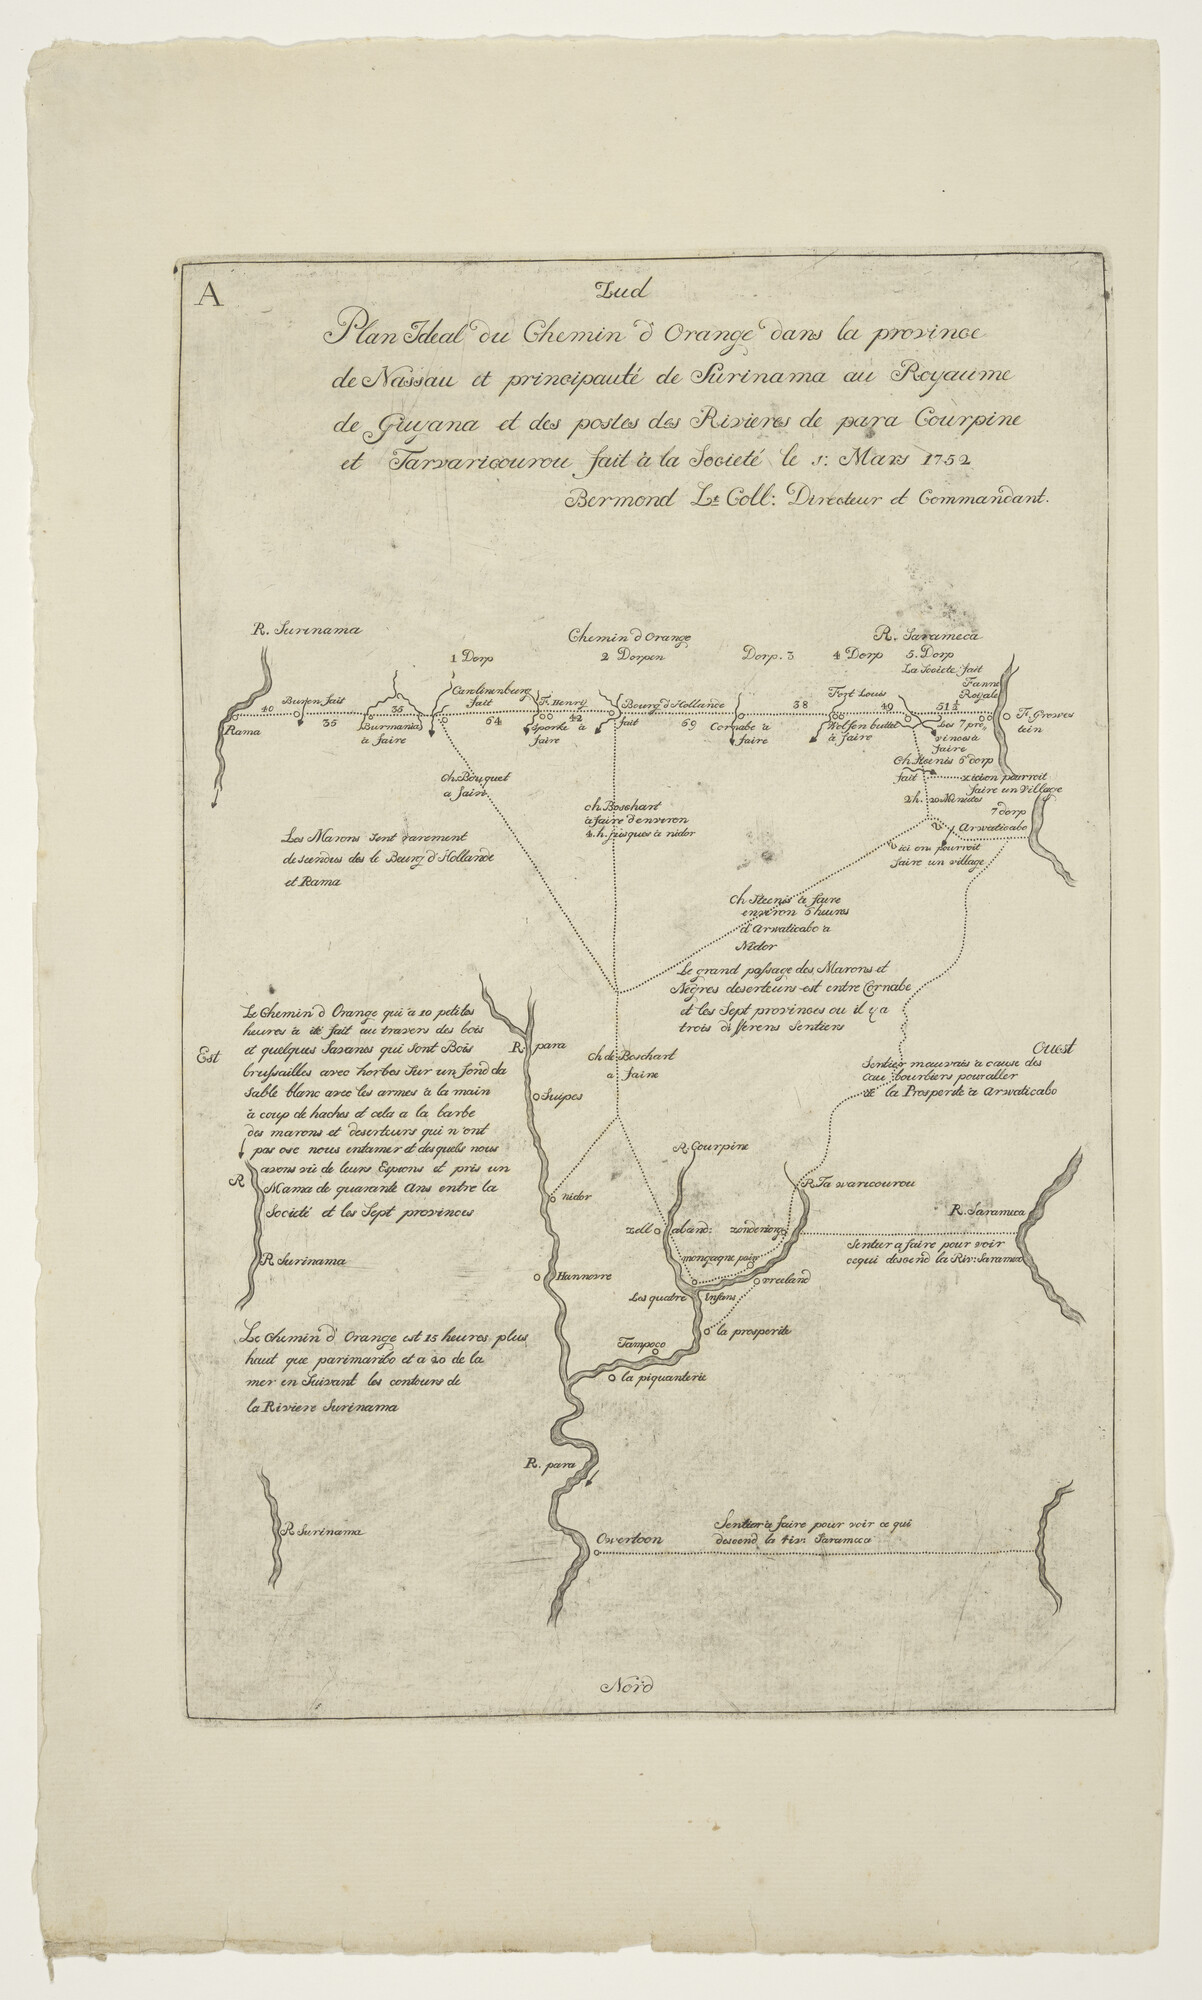 A
Zud
Plan Ideal du Chemin d'Orange dans la province
de Nassau et principauté de Surinama au Royaume
de Guyana et des postes des Rivieres de para Courpine
et Tarvaricourou fait à la Societé le 1: Mars 1752
Bermond Lt Coll: Directeur et Commandant.
R. Surinama
Chemin d'Orange
R. Sarameca
1 Dorp
2 Dorpen
Dorp. 3
4 Dorp
5. Dorp
La Societe fait
Fanne
Royale
Carolinenburg
fait
Fort Louis
Buren fait
F. Henry
Bourg d'Hollande
40
35
35
64
42
69
38
49
51½
Rama
Burmania
à faire
Sporke à
faire
fait
Cornabe à
faire
Wolfenbuttel
à faire
Les 7 pro=
vinces à
faire
F. Groves
tein
Ch. Steenis 6 dorp
fait
ici on pourroit
faire un Village
2 h. 20 Minutes
7 dorp
Arwaticabo
ici on pourroit
faire un village
Ch. Bouquet
a faire
ch. Boschart
à faire d'environ
4. h. jusques à nidor
Les Marons sont rarement
descendus des le Bourg d'Hollande
et Rama
Ch Steenis à faire
environ 6 heures
d'Arwaticabo a
Nidor
Le grand passage des Marons et
Negres deserteurs est entre Cornabe
et les Sept provinces ou il y a
trois differens Sentiers
Le Chemin d'Orange qui a 10 petites
heures à été fait au travers des bois
et quelques Savanes qui sont Bois
brussailles avec herbes sur un fond de
sable blanc avec les armes à la main
à coup de haches et cela a la barbe
des marons et deserteurs qui n'ont
pas osé nous entamer et desquels nous
avons vû de leurs Espions et pris un
Mama de quarante Ans entre la
Societé et les Sept provinces
Est
Ouest
R. para
Ch de Boschart
a faire
Sentier mauvais à cause des
eau bourbiers pour aller
de la Prosperité à Arwaticabo
Supes
R. Courpine
R
R. Ta waricourou
nidor
R. Sarameca
zell
aband:
zonderzorg
Sentier a faire pour voir
ce qui descend la Riv: Sarameca
R Surinama
Hannovre
mongagne pois
vreeland
Les quatre Enfans
la prosperité
Tampoco
la piquanterie
Le Chemin d'Orange est 15 heures plus
haut que parimaribo et a 20 de la
mer en Suivant les contours de
la Riviere Surinama
R. para
R Surinama
Overtoon
Sentier à faire pour voir ce qui
descend la riv. Sarameca
Nord